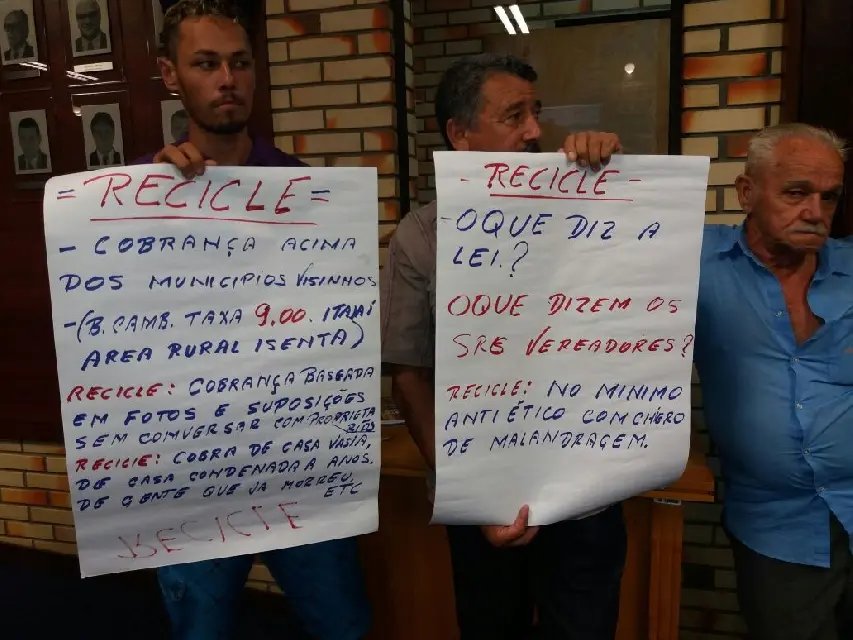 = RECICLE =
- COBRANÇA ACIMA
DOS MUNICIPIOS VISINHOS
- (B. CAMB. TAXA 9.00. ITAJAÍ
AREA RURAL ISENTA)
RECICLE: COBRANÇA BASEADA
EM FOTOS E SUPOSIÇÕES
SEM COMVERSAR COM PROPRIETA
RIOS
RECICLE: COBRA DE CASA VASIA,
DE CASA CONDENADA A ANOS.
DE GENTE QUE JA MORREU
ETC
RECICLE
- RECICLE -
- OQUE DIZ A
LEI.?
OQUE DIZEM OS
SRE VEREADORES?
RECICLE: NO MINIMO
ANTI ÉTICO COM CHÉRO
DE MALANDRAGEM.